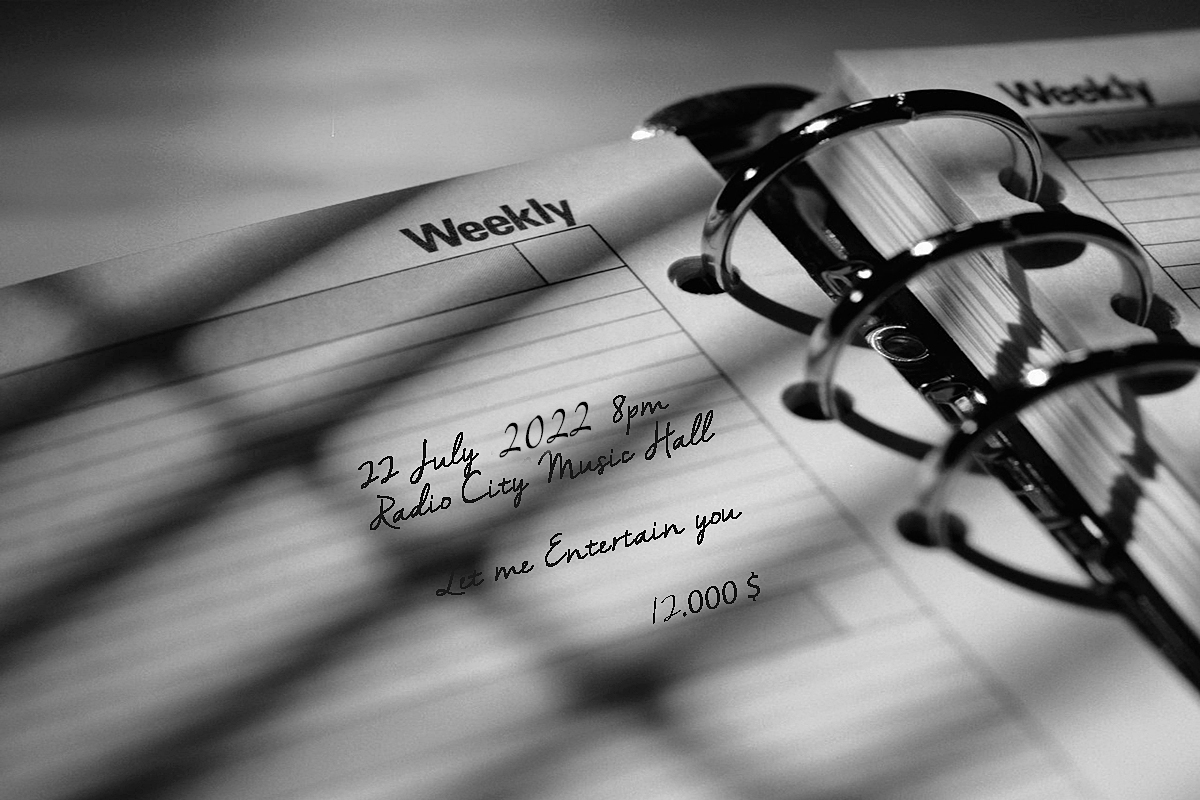 Weekly
22 July 2022 8pm
Radio City Music Hall
Let me Entertain you
12.000 $
Weekly
Thursday